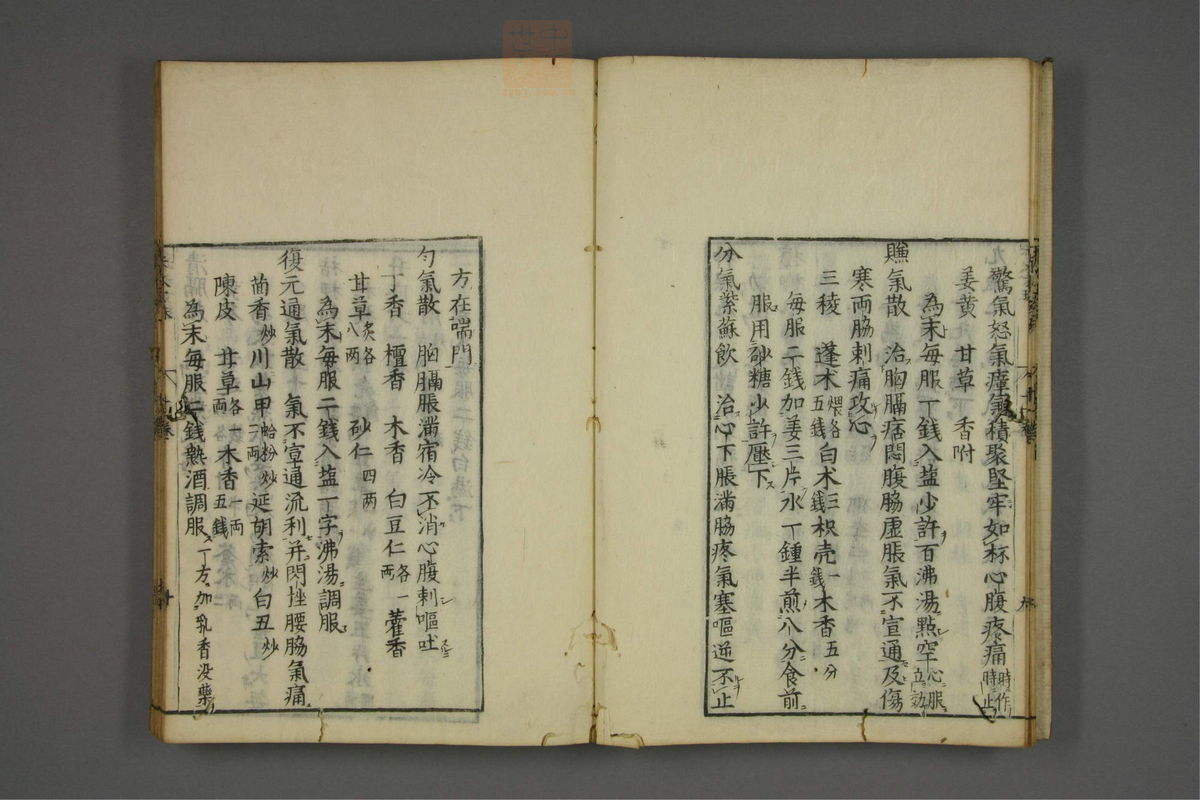 驚氣怒氣癉氣積聚堅牢如杯心腹疼痛時作時止
姜黄 甘草 香附
為末毎服一錢入盐少許百沸湯點空心服立効
氣散 治胸膈痞悶腹脇虚脹氣不宣通及傷
寒両脇刺痛攻心
三稜 蓬术煨各五錢白术三錢枳壳一錢木香五分
毎服二錢加姜三片水一鍾半煎八分食前
服用砂糖少許壓下
分氣紫蘇飲 治心下脹満脇疼氣塞嘔逆不止
一方在喘門
勻氣散 胸膈脹満宿冷不消心腹刺嘔吐
丁香 檀香 木香 白豆仁各一両 藿香
甘草炙各八両 砂仁四両
為末毎服二錢入盐一字沸湯調服
復元通氣散 氣不宣通流利并閃挫腰脇氣痛
茴香炒川山甲蛤粉炒二両延胡索炒白丑炒
陳皮 甘草各一両木香一両五錢
為末毎服二錢熱酒調服一方加乳香没藥